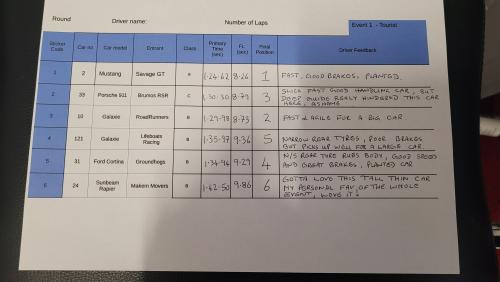 Round Driver name: Number of Laps Event 1 - Tourist
Sticker Code Car no Car model Entrant Class Primary Time (sec) FL (sec) Final Position Driver Feedback
1 2 Mustang Savage GT 1.24.62 8.26 1 FAST, GOOD BRAKES, PLANTED.
2 33 Porsche 911 Brumos RSR C 1.30.50 8.79 3 SUCH FAST GOOD HANDLING CAR, BUT
DEEP GUIDE REALY HINDERED THIS CAR
HERE, ASHAME
3 10 Galaxie RoadRunners B 1.29.98 8.73 2 FAST & AGILE FOR A BIG CAR
4 121 Galaxie Lifeboats Racing B 1.35.97 9.36 5 NARROW REAR TYRES, POOR BRAKES
BUT PICKS UP WELL FOR A LARGE CAR.
5 31 Ford Cortina Groundhogs B 1.34.96 9.29 4 N/S REAR TYRE RUBS BODY, GOOD SPEED
AND GREAT BRAKES, PLANTED CAR
6 24 Sunbeam Rapier Makem Movers B 1.42.50 9.86 6 GOTTA LOVE THIS TALL THIN CAR
MY PERSONAL FAV OF THE WHOLE
EVENT, LOVE IT!